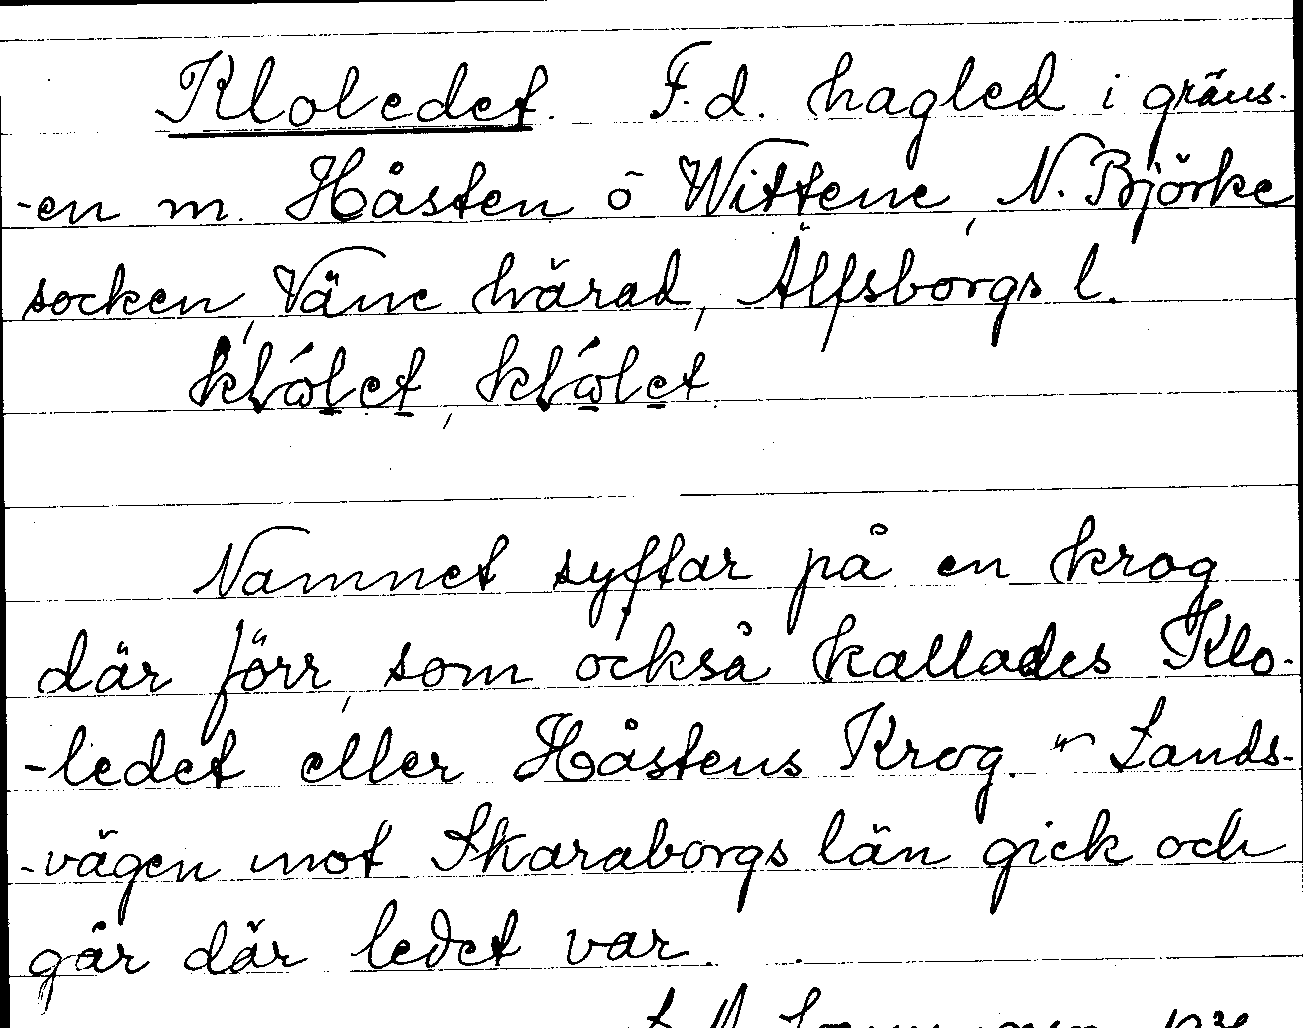 Kloledet. F.d. hagled i gräns-
-en m. Håsten o Wittene, N. Björke
socken, Väne härad, Älfsborgs l.
Namnet syftar på en krog
där förr, som också kallades Klo-
-ledet eller Håstens Krog. Lands-
-vägen mot Skaraborgs län gick och
går där ledet var.